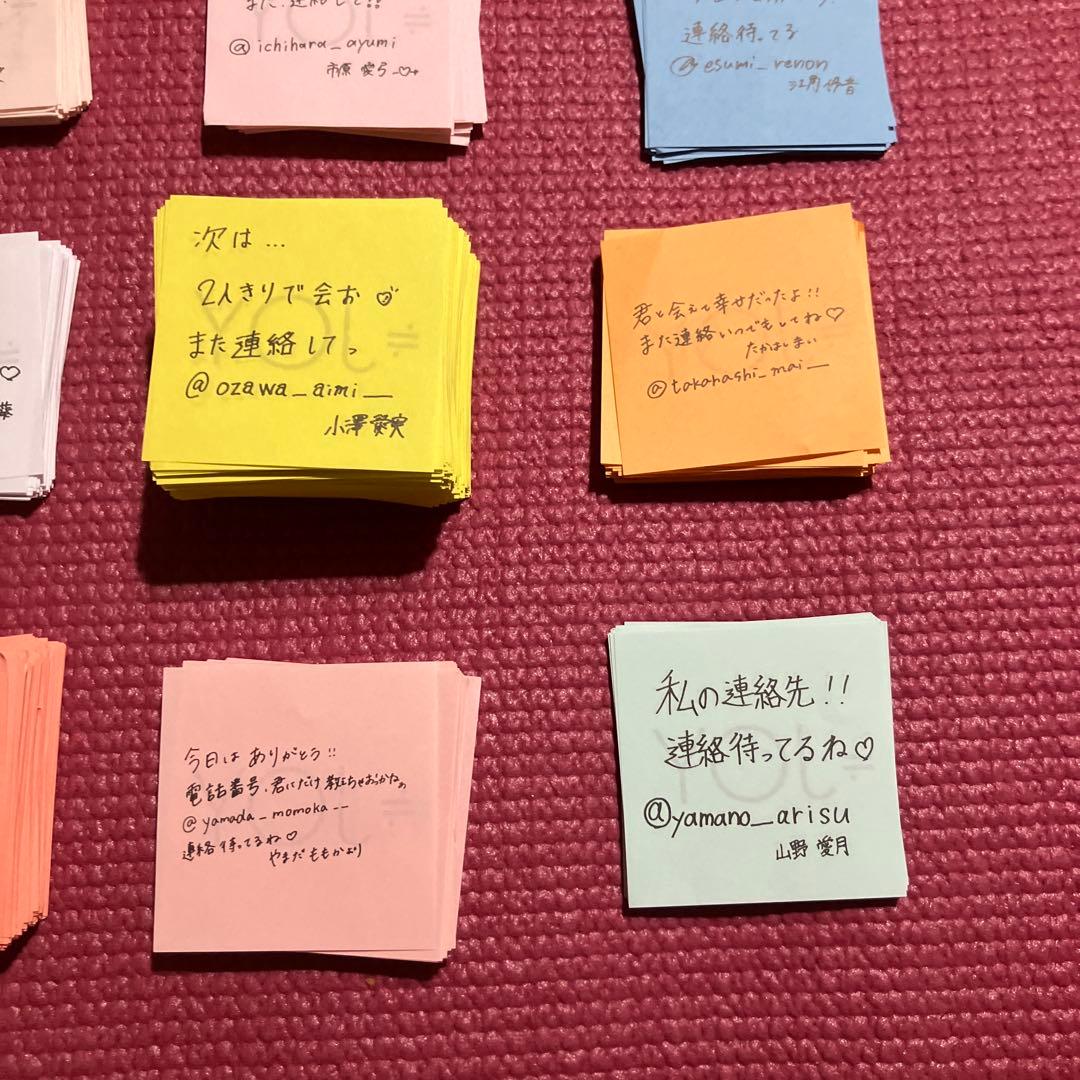 また連絡して!!
@ichihara_ayumi
市原 愛弓
連絡待ってる
@esumi_renon
江角怜音
次は…
2人きりで会お
また連絡してっ
@ozawa_aimi__
小澤愛実
君と会えて幸せだったよ!!
また連絡いつでもしてね♡
たかはしまい
@takahashi_mai__
今日はありがとう!!
電話番号、君にだけ教えちゃおっかなぁ
@yamada_momoka--
連絡待ってるね♡
やまだももかより
私の連絡先!!
連絡待ってるね♡
@yamano_arisu
山野 愛月
≒JOY